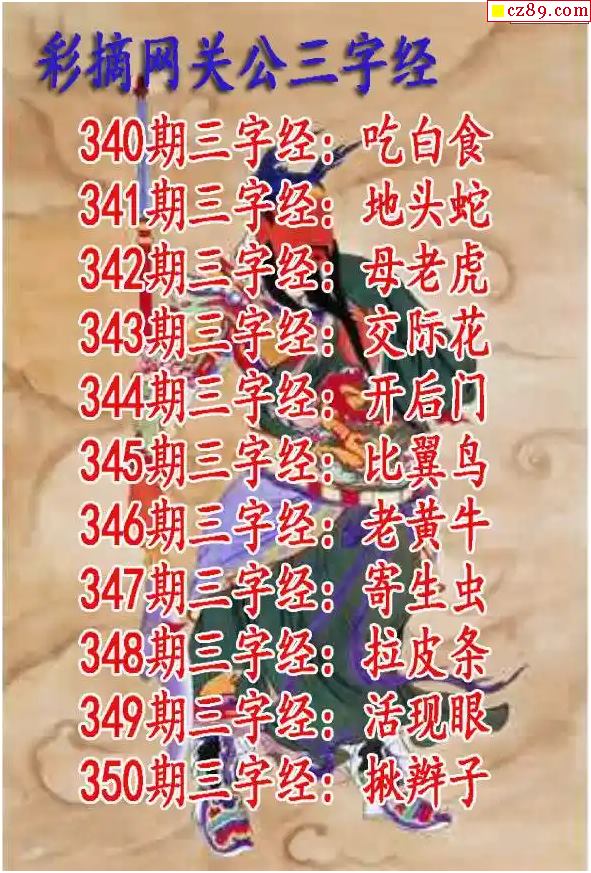 cz89.com
彩摘网关公三字经
340期三字经：吃白食
341期三字经：地头蛇
342期三字经：母老虎
343期三字经：交际花
344期三字经：开后门
345期三字经：比翼鸟
346期三字经：老黄牛
347期三字经：寄生虫
348期三字经：拉皮条
349期三字经：活现眼
350期三字经：揪辫子